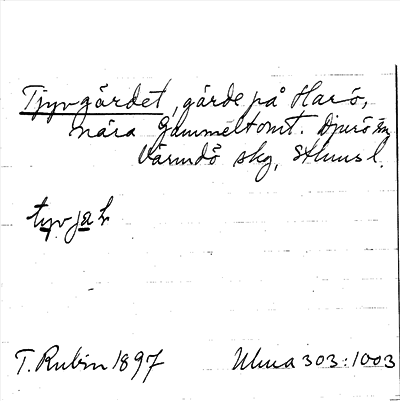 Tjyvgärdet, gärde på Harö,
nära Gammeltomt. Djurö sn,
Värmdö skg, Sthms l.
T. Rubin 1897 Ulma 303:1003